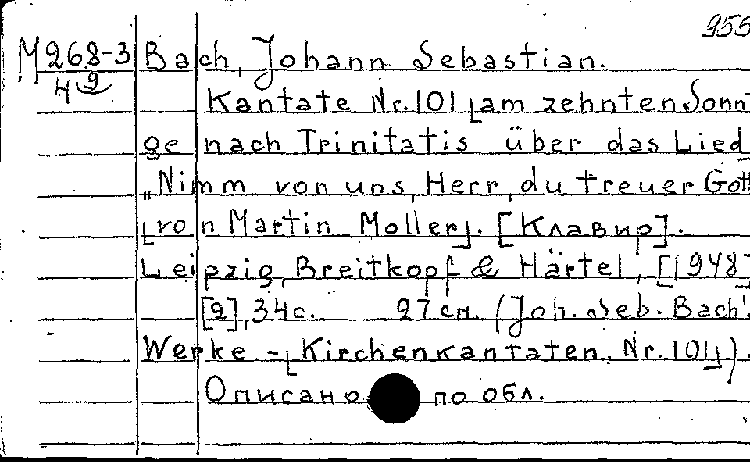 955
М 268-3 Bach, Johann Sebastian.
4 9
Kantate Nr. 101 [am zehnten Sonnt
ge nach Trinitatis über das Lied
„Nimm von uns, Herr, du treuer Gott
[von Martin Moller]. [Клавир].
Leipzig, Breitkopf & Härtel, [1948]
[2], 34 с. 27 см. (Joh. Seb. Bach'
Werke - [Kirchenkantaten, Nr. 101]).
Описано по обл.